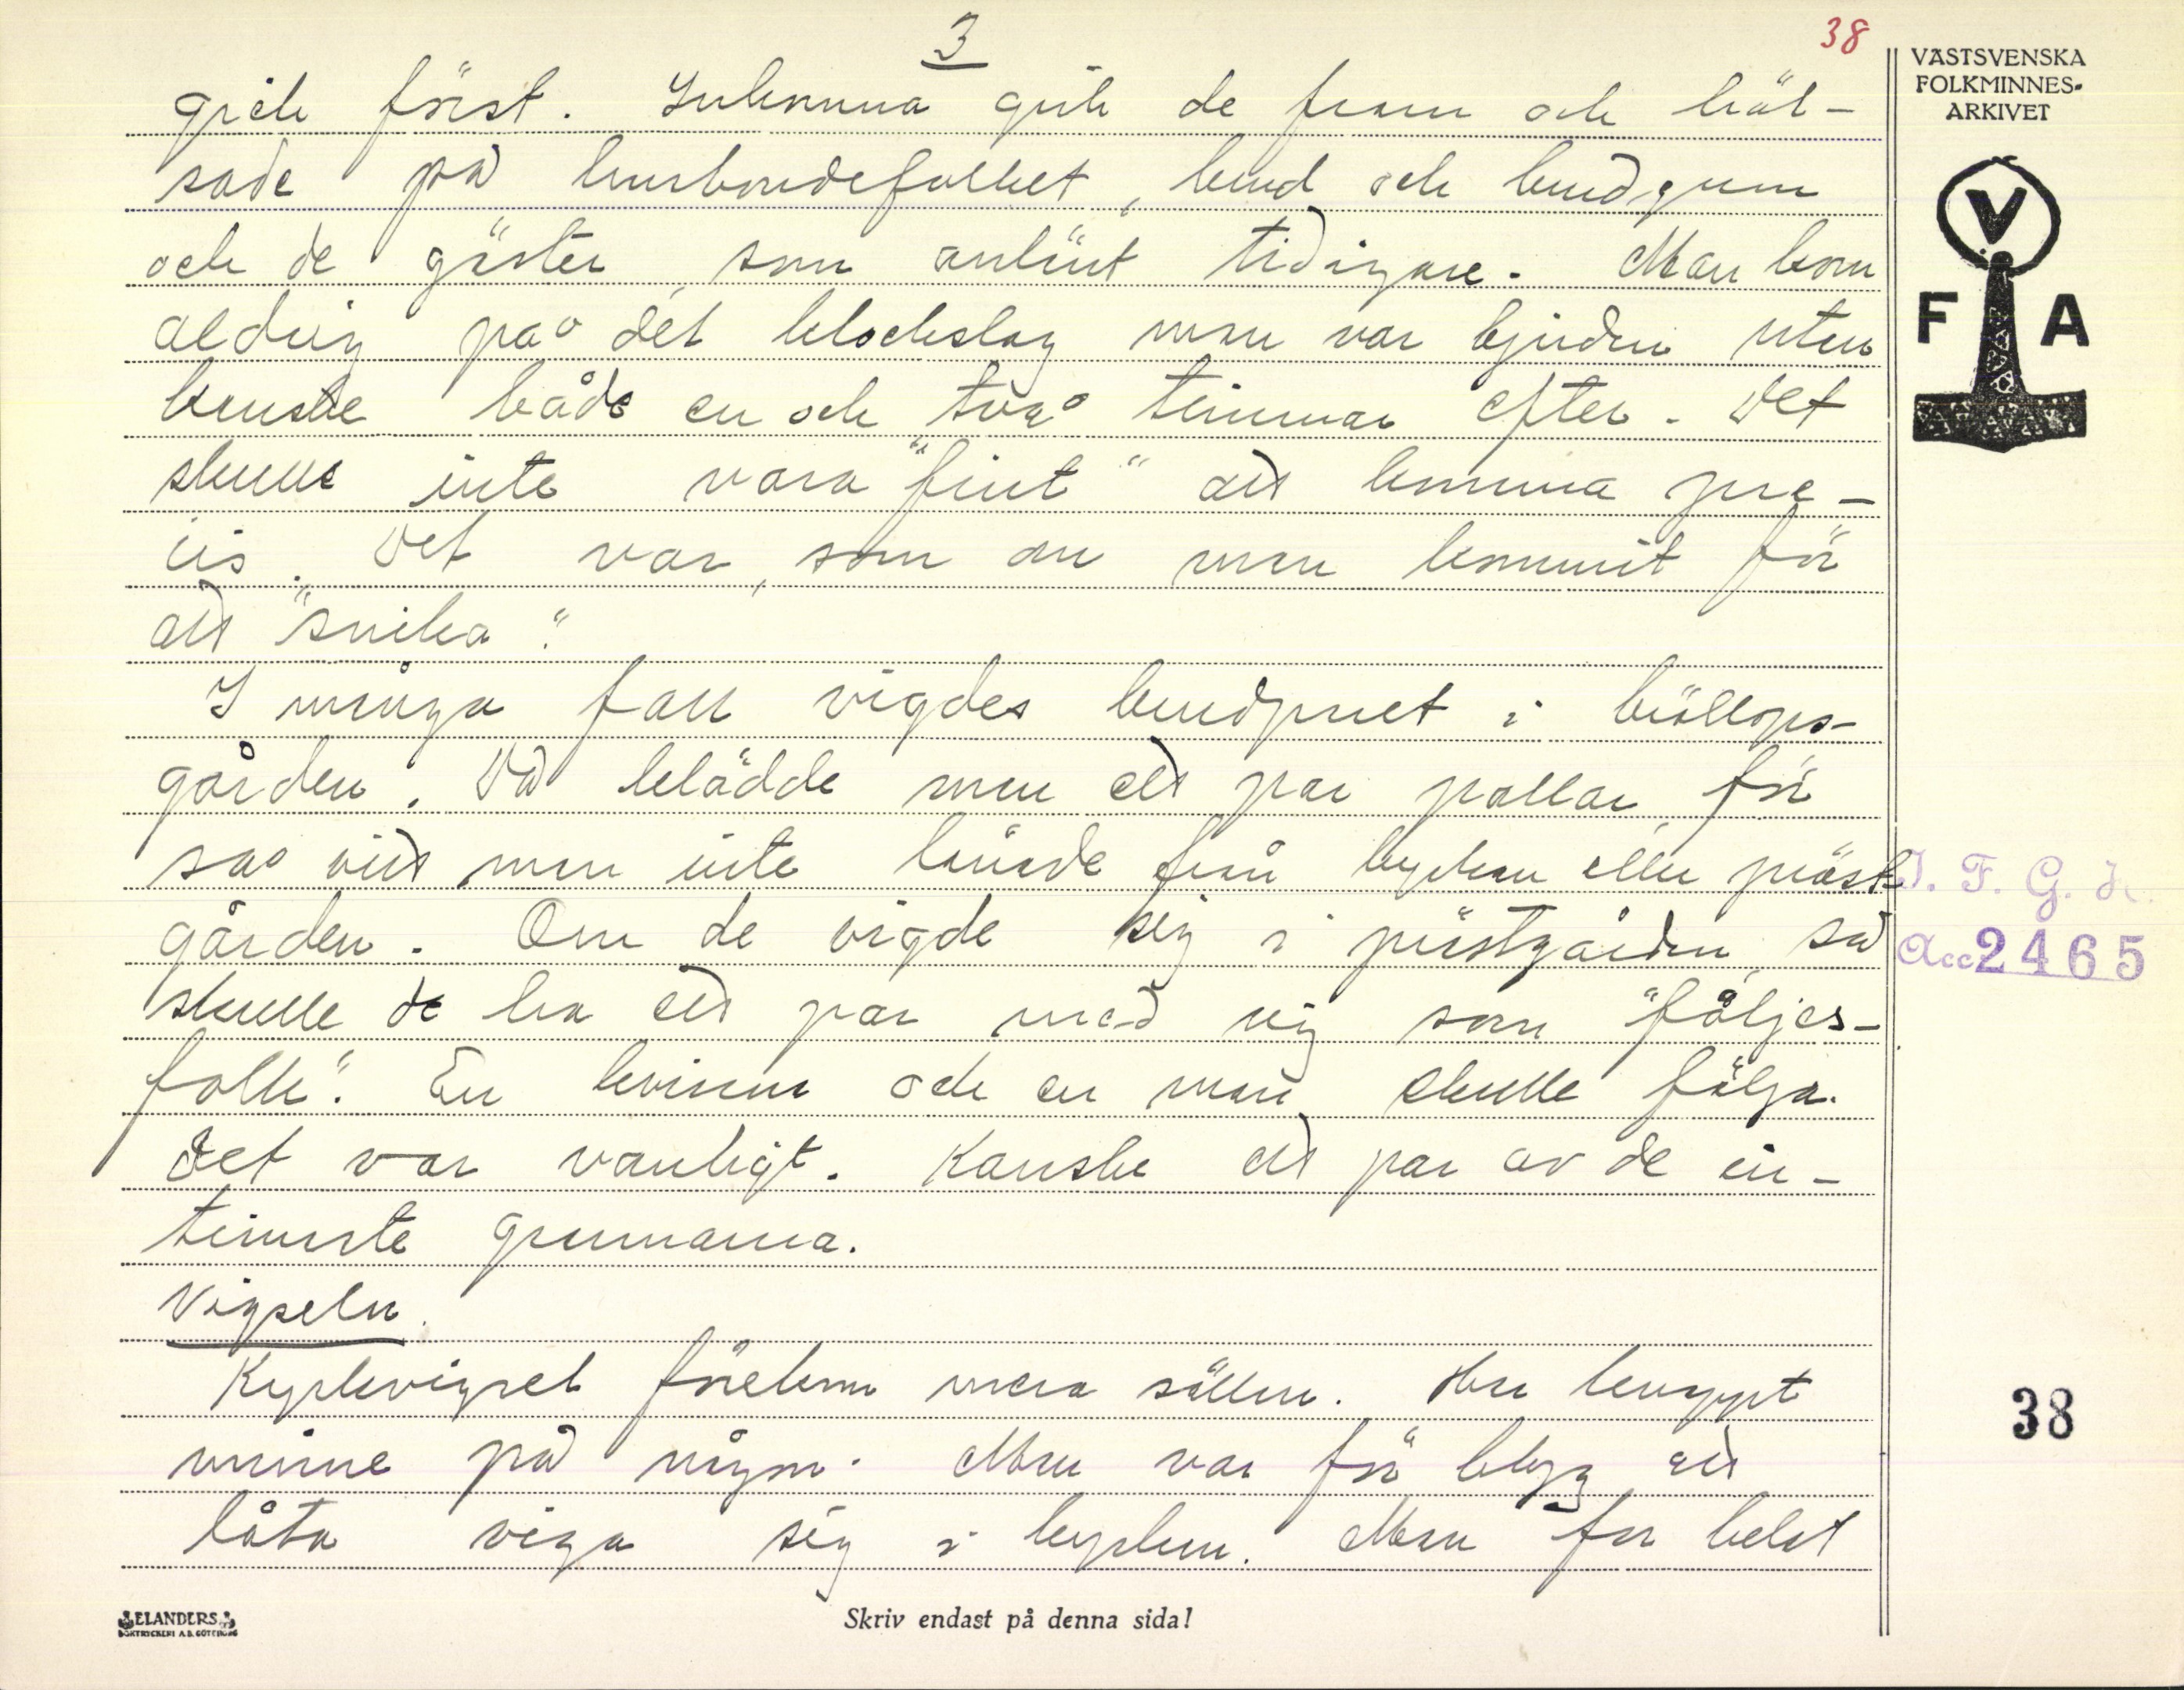 3
38
VÄSTSVENSKA
FOLKMINNES-
ARKIVET
V
F A
gick först. Inkomna gick de fram och häl-
sade på husbondefolket, brud och brudgum
och de gäster, som anlänt tidigare. Man kom
aldrig på det klockslag man var bjuden utan
kanske både en och två timmar efter. Det
skulle inte vara "fint" att komma pre-
cis. Det var, som om man kommit för
att "snika".
I många fall vigdes brudparet i bröllops-
gården. Då klädde man ett par pallar för
så vitt man inte lånade från kyrkan eller präst-
gården. Om de vigde sig i prästgården, så
skulle de ha ett par med sig som "följes-
folk". En kvinna och en man skulle följa.
Det var vanligt. Kanske ett par av de in-
timaste grannarna.
Vigseln.
Kyrkvigsel förekom mera sällan. Har knappt
minne på någon. Man var för blyg att
låta viga sig i kyrkan. Man for helst
I. F. G. H.
Acc 2465
38
ELANDERS
BOKTRYCKERI A.B. GÖTEBORG
Skriv endast på denna sida!